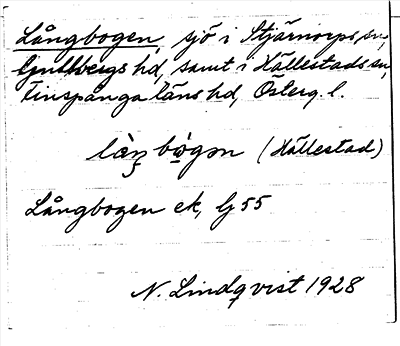 Långbogen, sjö i Stjärnorps sn,
Gullbergs hd, samt i Hällestads sn,
Finspånga läns hd, Österg. l.
(Hällestad)
Långbogen ek, G 55
N. Lindqvist 1928